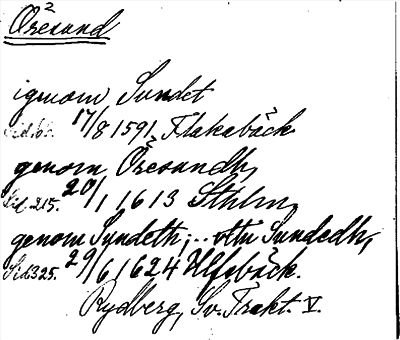 Öresund
igenom Sundet
Sid. 61. 17/8 1591, Flakabäck
genom Öresundh,
Sid. 215. 20/1 1613 Sthlm,
genom Syndeth; .. ottu Sundedh,
Sid. 325. 29/6 1624 Ulfsbäck.
Rydberg, Sv. Trakt. V.